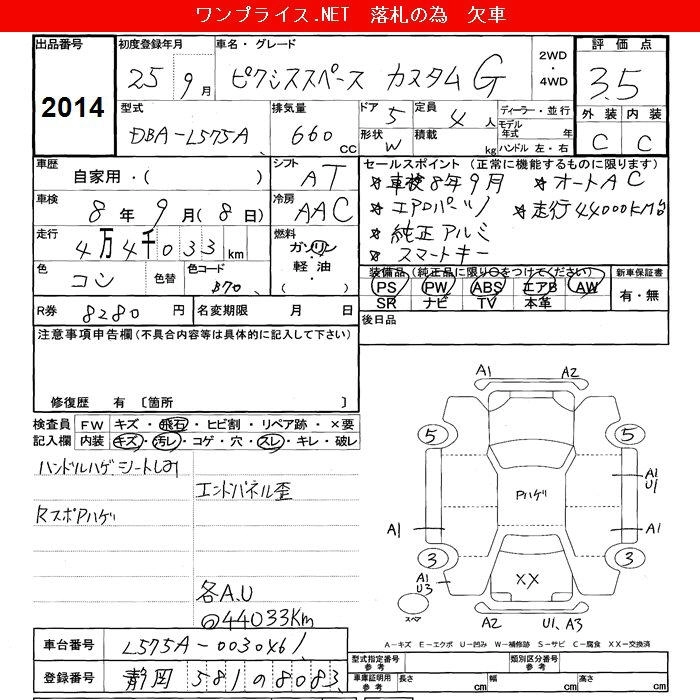 ワンプライス.NET　落札の為　欠車
出品番号 2014
初度登録年月 25 9月
車名・グレード ピクシススペース カスタム G
2WD・4WD
評価点 3.5
外装 内装
C C
型式 DBA-L575A
排気量 660 CC
ドア 5
形状 W
定員 4人
積載 kg
ディーラー・並行
モデル年式 年
ハンドル 左・右
車歴 自家用・( )
シフト AT
セールスポイント (正常に機能するものに限ります)
＊車検8年9月 ＊オートAC
＊エアロパーツ ＊走行44000KM台
＊純正アルミ
＊スマートキー
車検 8年9月(8日)
冷房 AAC
走行 4万4千033km
燃料 ガソリン・軽油・( )
色 コン
色替
色コード B70
装備品 (純正品に限り○をつけてください)
PS PW ABS エアB AW
SR ナビ TV 本革
新車保証書 有・無
R券 8280円
名変期限 月 日
後日品
注意事項申告欄(不具合内容等は具体的に記入して下さい)
修復歴 有〔箇所 〕
検査員記入欄
FW キズ・飛石・ヒビ割・リペア跡・×要
内装 キズ・汚レ・コゲ・穴・スレ・キレ・破レ
ハンドルハゲ シートしみ
エンドパネル歪
RスポPハゲ
各A.U
@44033Km
A1 A2
5 5
Pハゲ
A1 U1
A1 A1
3 3
A1 U3
XX
スペア
A2 U1、A3
A-キズ E-エクボ U-凹み W-補修跡 S-サビ C-腐食 XX-交換済
車台番号 L575A-0030461
登録番号 静岡 581 の 8083
型式指定番号 参考
類別区分番号 参考
車庫証明用 参考 長さ cm 幅 cm 高さ cm